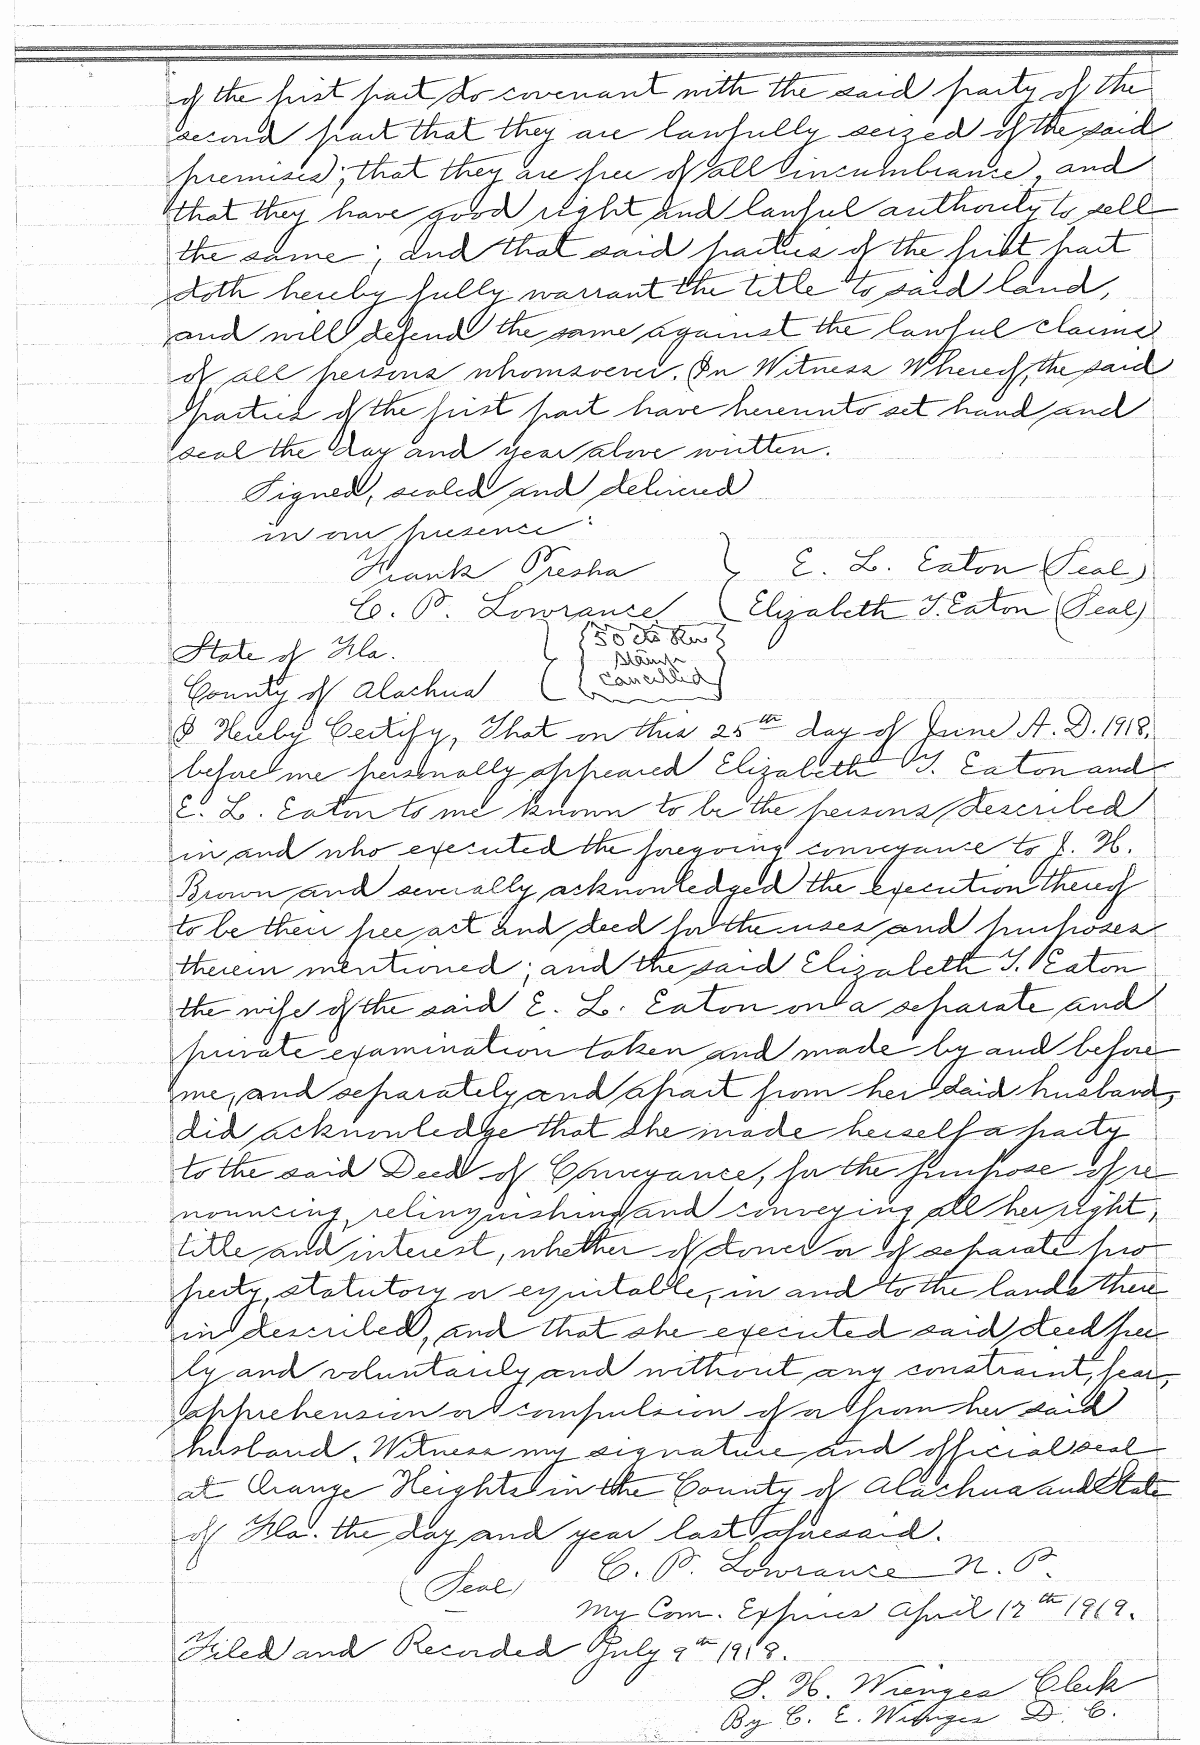 of the first part do covenant with the said party of the
second part that they are lawfully seized of the said
premises; that they are free of all incumbrance, and
that they have good right and lawful authority to sell
the same; and that said parties of the first part
doth hereby fully warrant the title to said land,
and will defend the same against the lawful claims
of all persons whomsoever. In Witness Whereof, the said
parties of the first part have hereunto set hand and
seal the day and year above written.
Signed, sealed and delivered
in our presence:
Frank Presha } E. L. Eaton (Seal)
C. P. Lowrance ( Elizabeth T. Eaton (Seal)
State of Fla.
County of Alachua
50 cts Rev
Stamp
cancelled
I Hereby Certify, That on this 25th day of June A.D. 1918,
before me personally appeared Elizabeth T. Eaton and
E. L. Eaton to me known to be the persons described
in and who executed the foregoing conveyance to J. H.
Brown and severally acknowledged the execution thereof
to be their free act and deed for the uses and purposes
therein mentioned; and the said Elizabeth T. Eaton
the wife of the said E. L. Eaton on a separate and
private examination taken and made by and before
me, and separately and apart from her said husband,
did acknowledge that she made herself a party
to the said Deed of Conveyance, for the purpose of re
nouncing, relinquishing and conveying all her right,
title and interest, whether of dower or of separate pro
perty, statutory or equitable, in and to the lands there
in described, and that she executed said deed free
ly and voluntarily and without any constraint, fear,
apprehension or compulsion of or from her said
husband. Witness my signature and official seal
at Orange Heights in the County of Alachua and State
of Fla. the day and year last aforesaid.
C. P. Lowrance N. P.
(Seal)
My Com. Expires April 17th 1919.
Filed and Recorded July 9th 1918.
S. H. Wienges Clerk
By C. E. Wienges D. C.